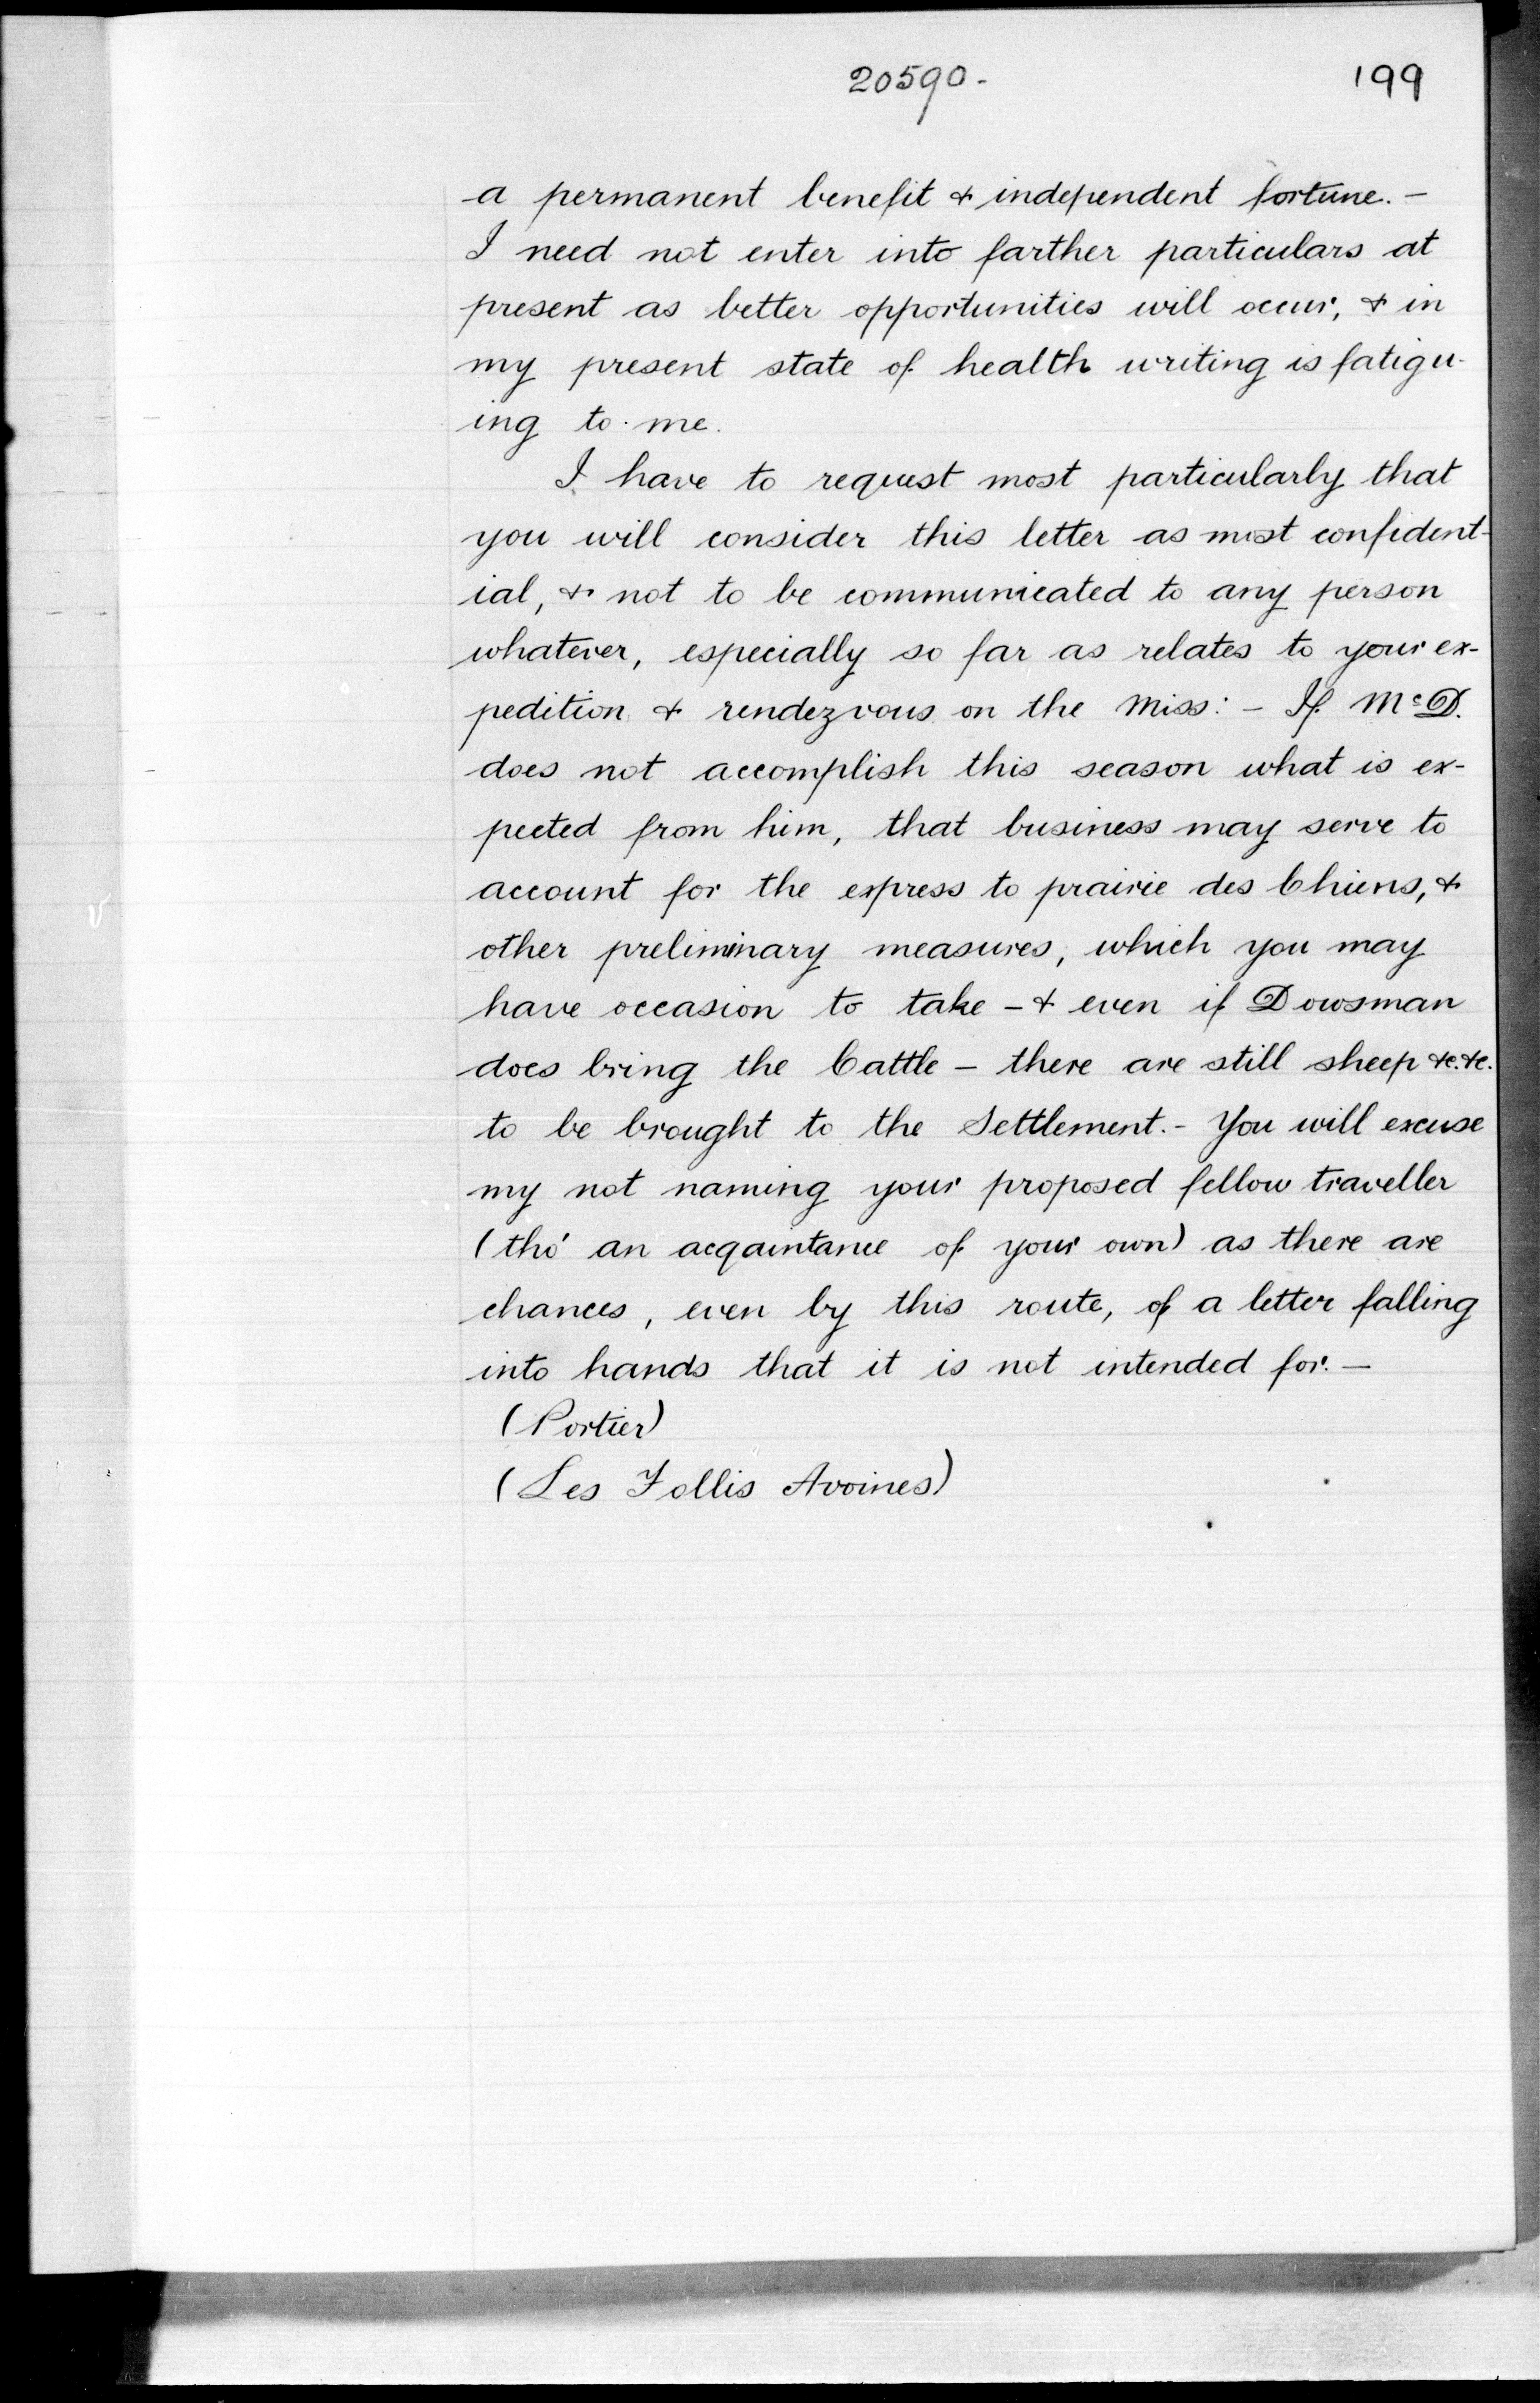 20590-
199
a permanent benefit & independent fortune. -
I need not enter into farther particulars at
present as better opportunities will occur, & in
my present state of health writing is fatigu-
ing to me.
I have to request most particularly that
you will consider this letter as most confident-
ial, & not to be communicated to any person
whatever, especially so far as relates to your ex-
pedition & rendezvous on the Miss: - If McD.
does not accomplish this season what is ex-
pected from him, that business may serve to
account for the express to prairie des Chiens, &
other preliminary measures, which you may
have occasion to take - & even if Dowsman
does bring the Cattle - there are still sheep &c. &c.
to be brought to the Settlement. - You will excuse
my not naming your proposed fellow traveller
(tho' an acqaintance of your own) as there are
chances, even by this route, of a letter falling
into hands that it is not intended for. -
(Portier)
(Les Follis Avoines)